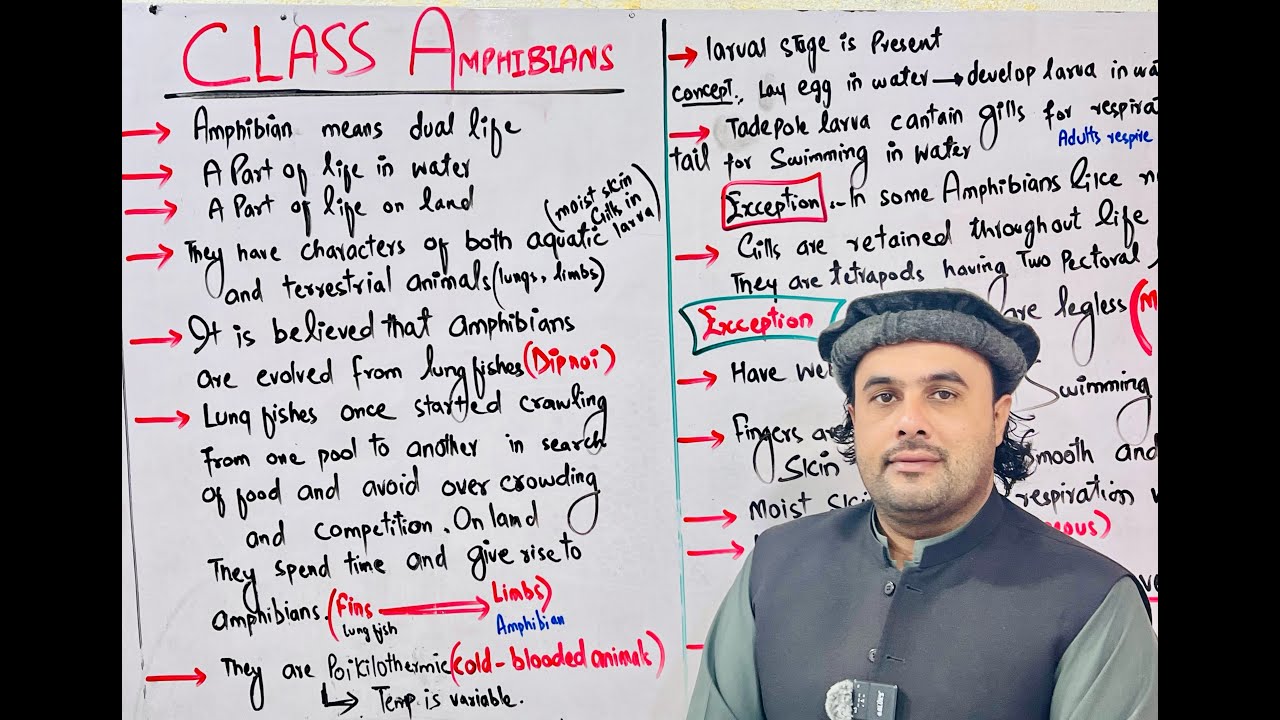 CLASS AMPHIBIANS
→ Amphibian means dual life
→ A Part of life in water
→ A Part of life on land
→ They have characters of both aquatic (moist skin Gills in larva)
and terrestrial animals (lungs, limbs)
→ It is believed that amphibians
are evolved from lung fishes (Dipnoi)
→ Lung fishes once started crawling
from one pool to another in search
of food and avoid over crowding
and competition. On land
They spend time and give rise to
amphibians. (Fins → Limbs)
lung fish Amphibian
→ They are Poikilothermic (cold-blooded animals)
↳ Temp is variable.
→ larval stage is Present
concept:. Lay egg in water → develop larva in
→ Tadepole larva cantain gills for
tail for Swimming in water Adults respire
Exception:- In some Amphibians like
→ Gills are retained throughout life
They are tetrapods having Two Pectoral
Exception are legless
→ Have Swimming
→ Fingers
Skin Smooth and
→ Moist respiration